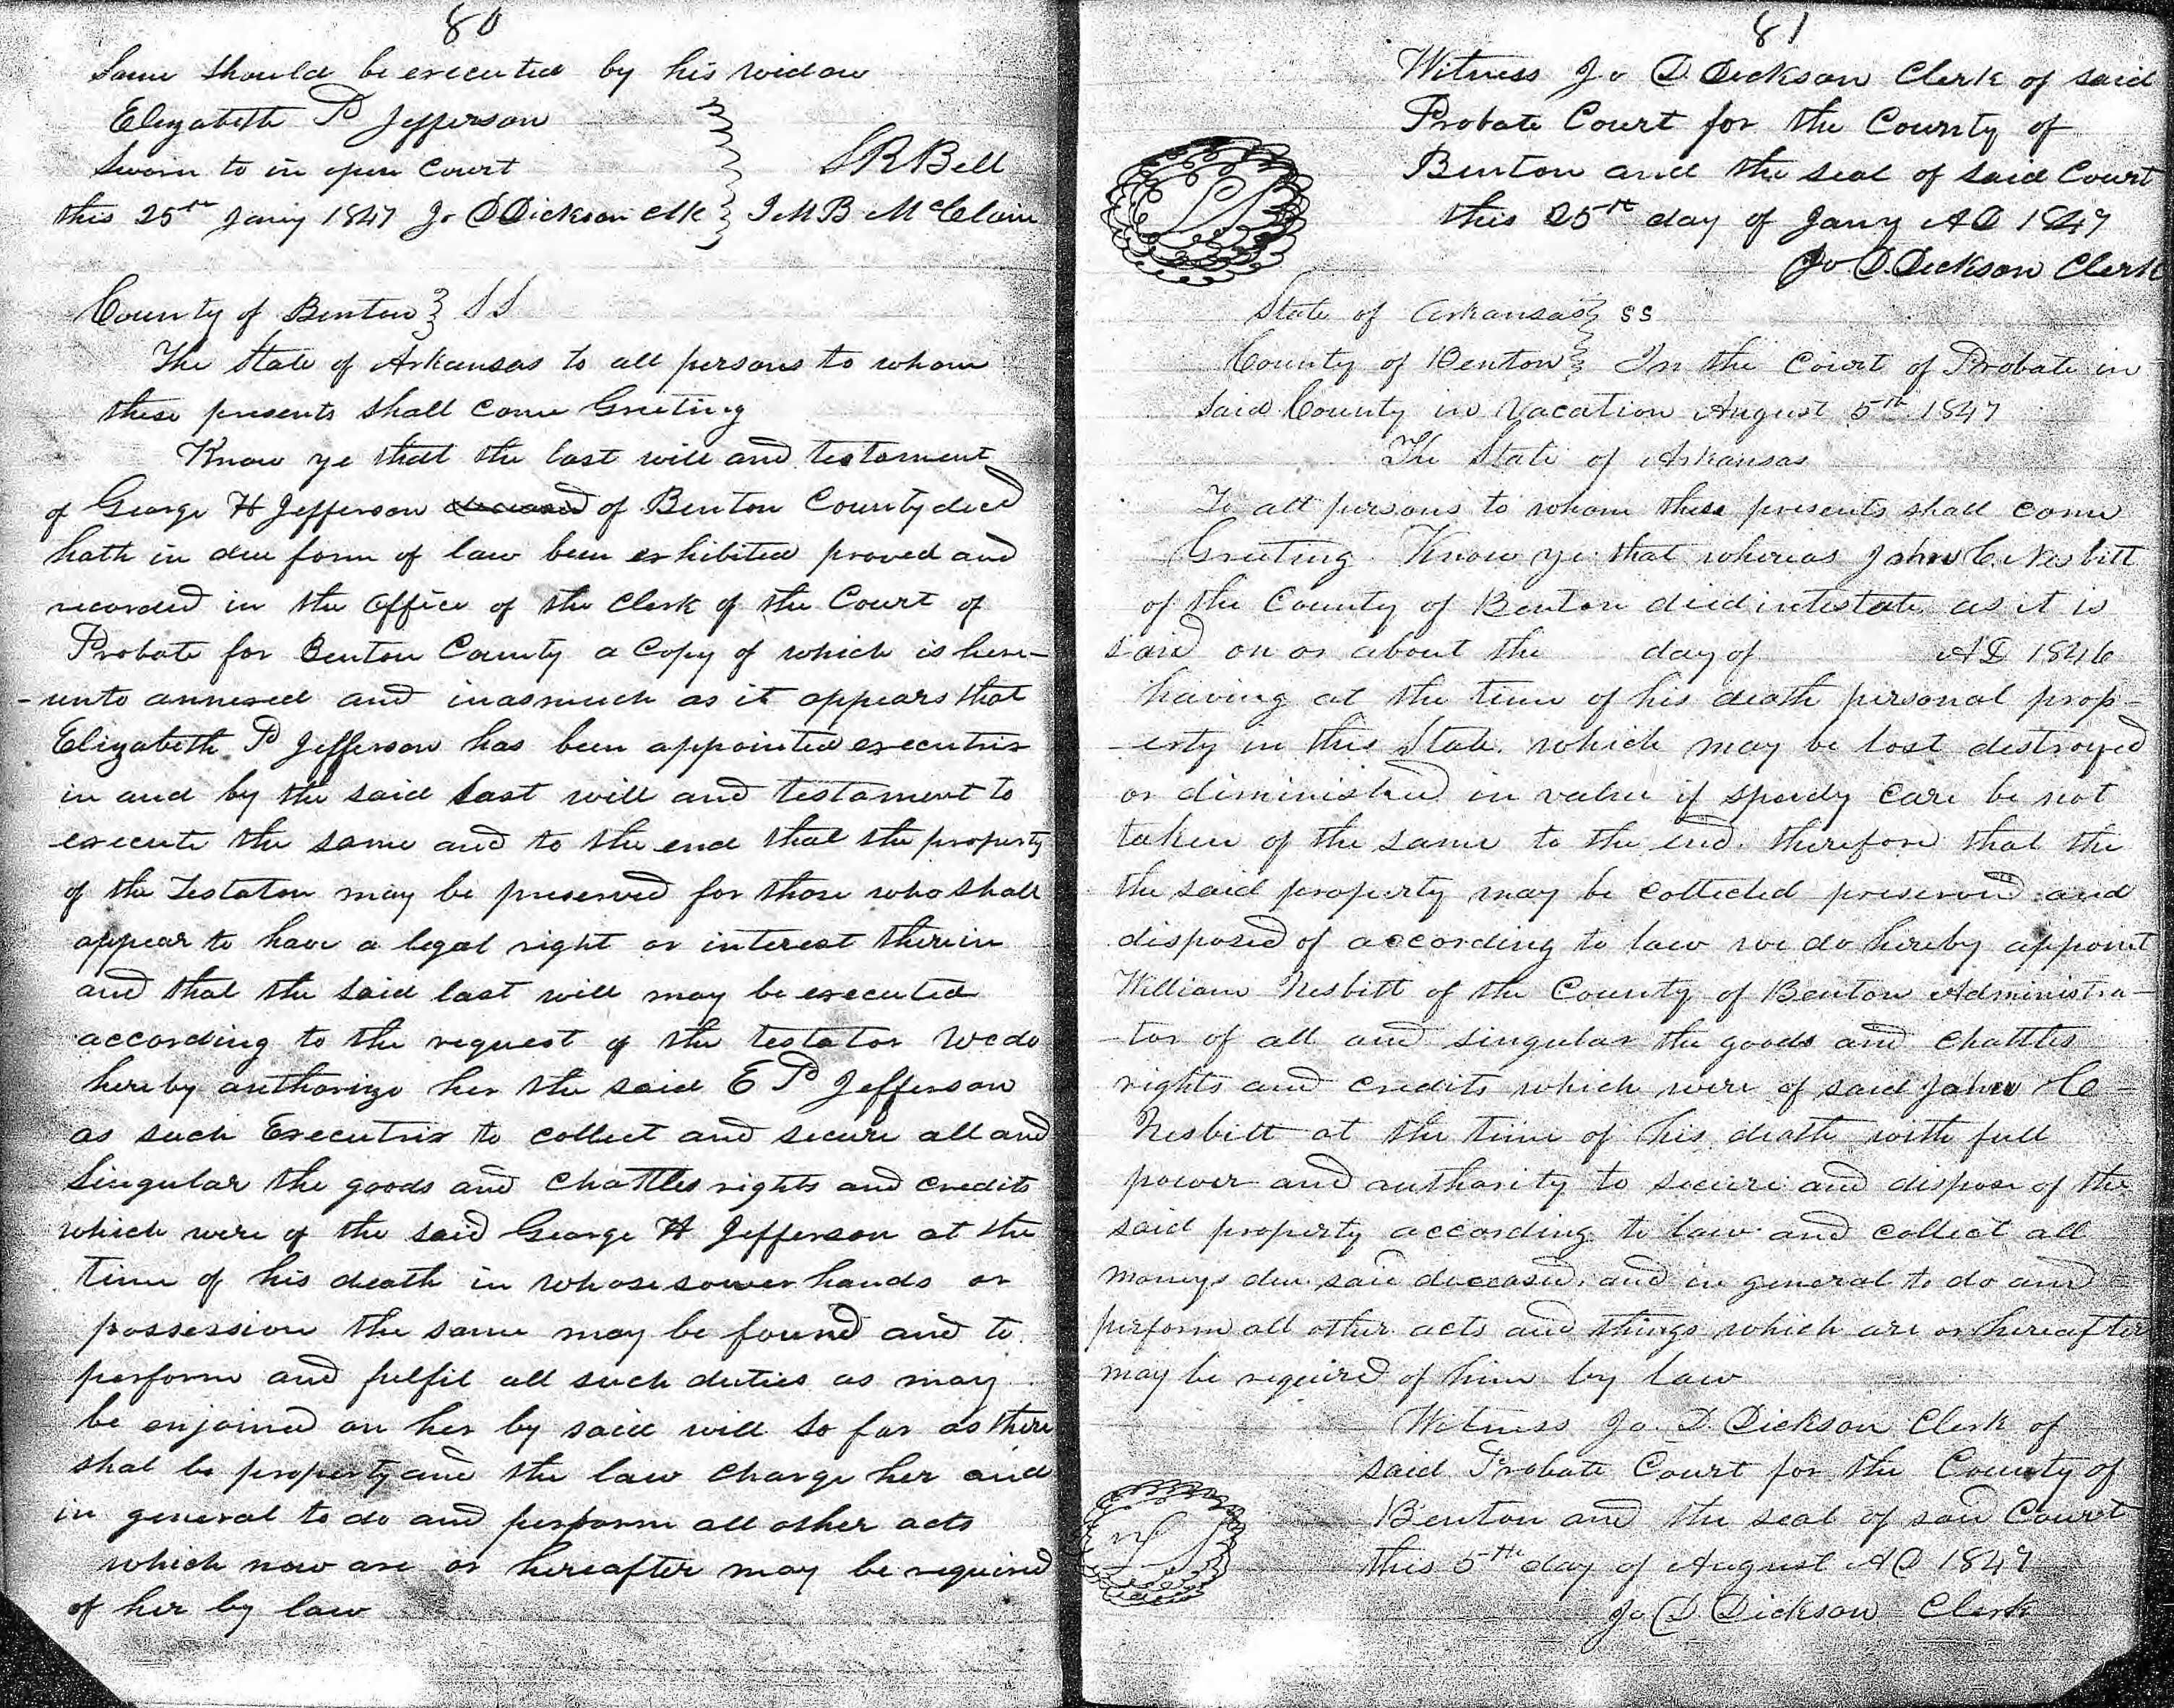 80
Same should be executed by his widow
Elizabeth P Jefferson
Sworn to in open Court
S R Bell
this 25th Jany 1847 Jo D Dickson Clk
J M B McClain
County of Benton } SS
The State of Arkansas to all persons to whom
these presents shall come Greeting
Know ye that the last will and testament
of George H Jefferson deceased of Benton County decd
hath in due form of law been exhibited proved and
recorded in the office of the Clerk of the Court of
Probate for Benton County a Copy of which is here-
-unto annexed and inasmuch as it appears that
Elizabeth P Jefferson has been appointed executrix
in and by the said last will and testament to
execute the same and to the end that the property
of the Testator may be preserved for those who shall
appear to have a legal right or interest therein
and that the said last will may be executed
according to the request of the testator We do
hereby authorize her the said E P Jefferson
as such Executrix to collect and secure all and
Singular the goods and Chattles rights and credits
which were of the said George H Jefferson at the
time of his death in whosesoever hands or
possession the same may be found and to
perform and fulfil all such duties as may
be enjoined on her by said will so far as there
shal be property and the law charge her and
in general to do and perform all other acts
which now are or hereafter may be required
of her by law
81
Witness Jo D. Dickson Clerk of said
Probate Court for the County of
Benton and the seal of said Court
this 25th day of Jany AD 1847
Jo D. Dickson Clerk
LS
State of Arkansas } SS
County of Benton } In the Court of Probate in
said County in Vacation August 5th 1847
The State of Arkansas
To all persons to whom these presents shall come
Greeting Know ye that whereas John C. Nesbitt
of the County of Benton died intestate as it is
said on or about the day of AD 1846
having at the time of his death personal prop-
-erty in this State which may be lost destroyed
or diminished in value if speedy care be not
taken of the same to the end therefore that the
the said property may be collected preserved and
disposed of according to law we do hereby appoint
William Nesbitt of the County of Benton Administra-
-tor of all and singular the goods and chattles
rights and credits which were of said John C-
Nesbitt at the time of his death with full
power and authority to secure and dispose of the
said property according to law and collect all
moneys due said deceased, and in general to do and
perform all other acts and things which are or hereafter
may be required of him by law
Witness Jo. D. Dickson Clerk of
said Probate Court for the County of
Benton and the seal of said Court
this 5th day of August AD 1847
Jo D Dickson Clerk